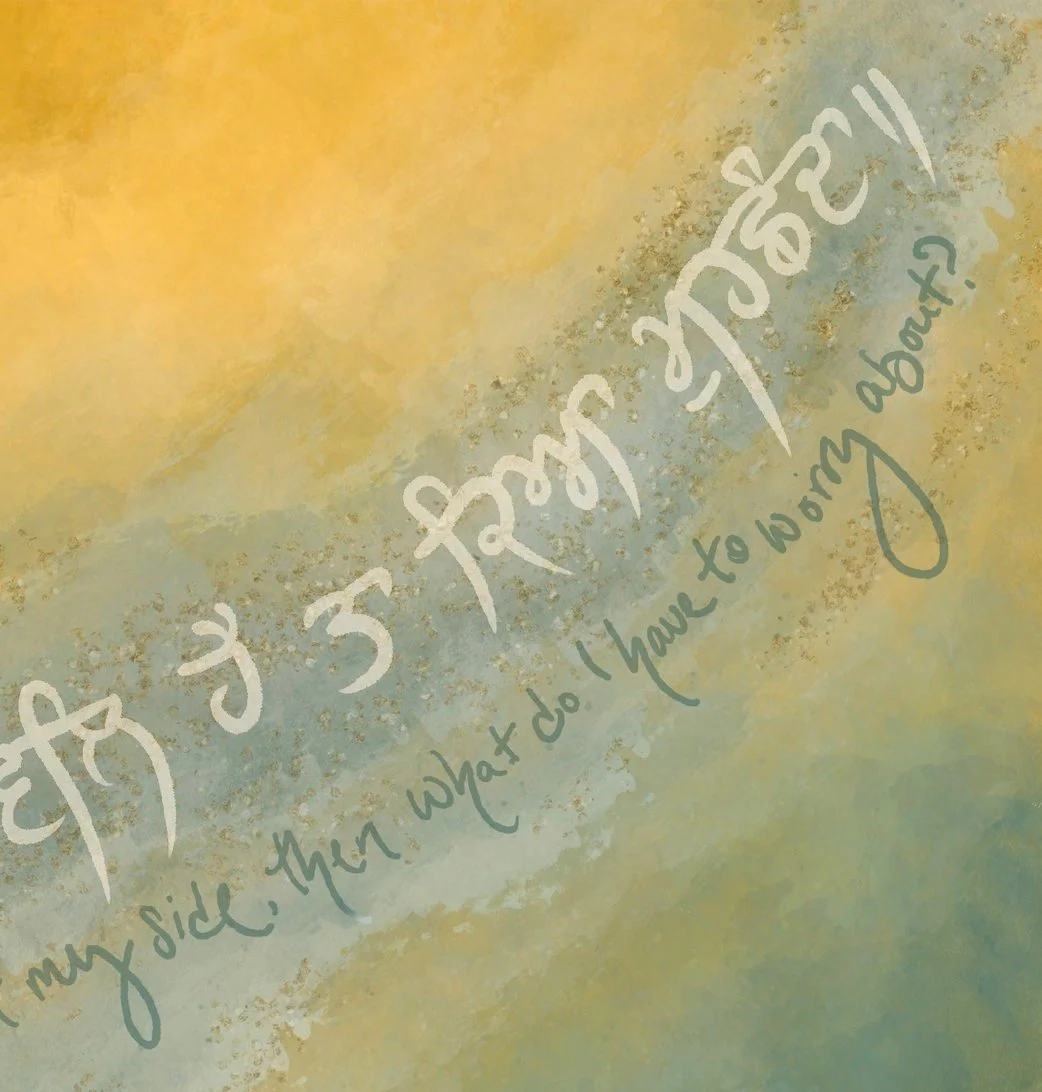 ਵਲਿ ਹੈ ਤਾ ਕਿਆ ਮੁਹਛੰਦਾ॥
my side, then what do I have to worry about?